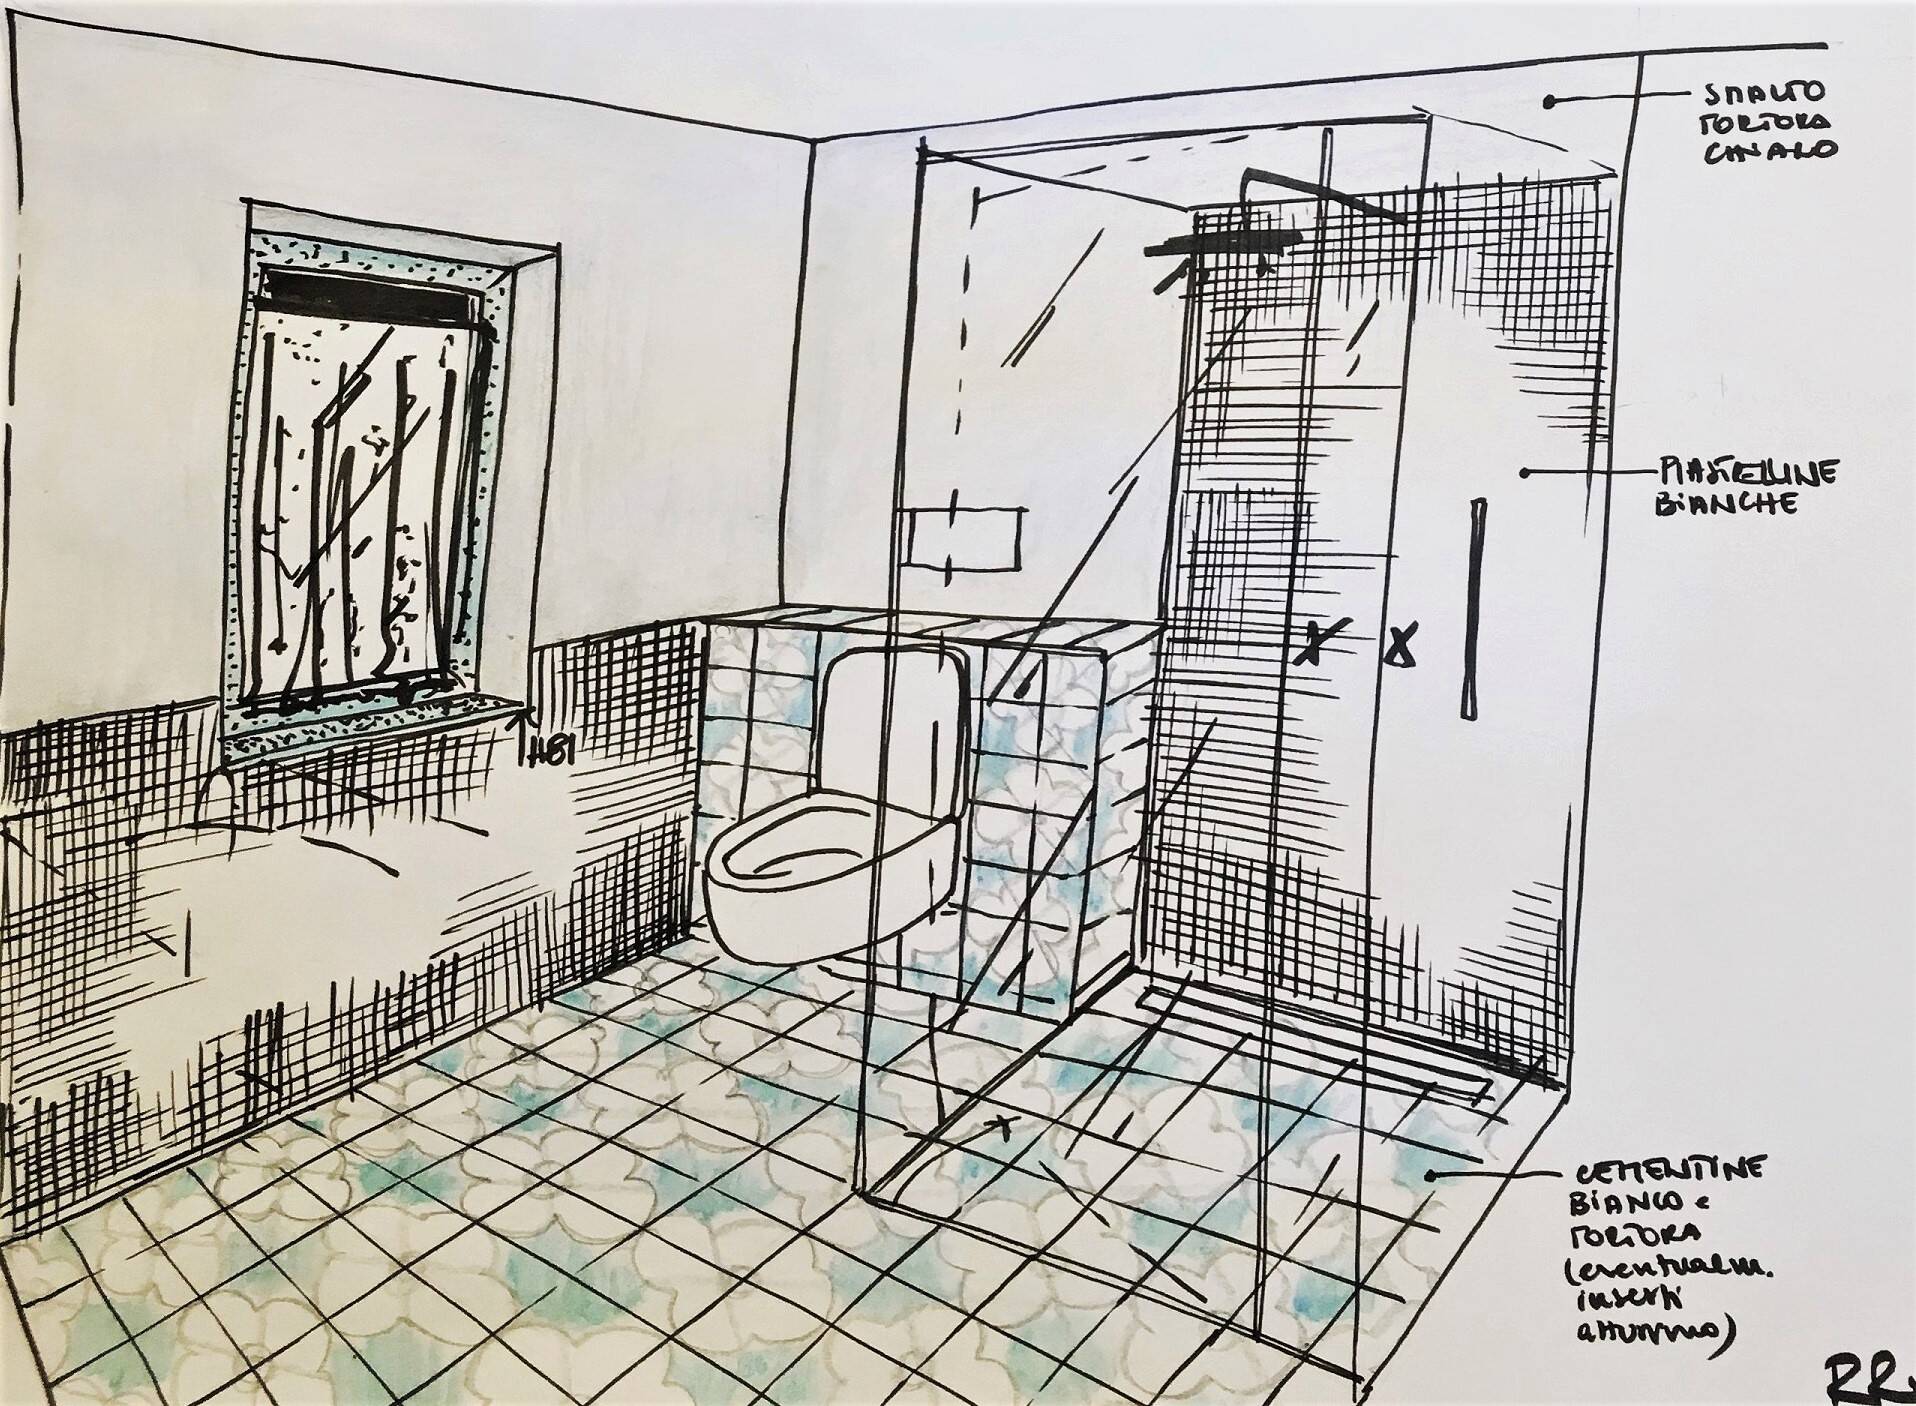 SMALTO
TORTORA
CHIARO
PIASTRELLINE
BIANCHE
H81
CEMENTINE
BIANCO e
TORTORA
(eventualm.
inserti
RR